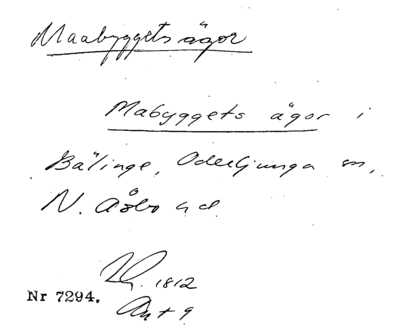 Maabyggets ägor
Mabyggets ägor i
Bälinge, Oderljunga sn,
N. Åsbo hd.
1812
Nr 7294.
Akt 9